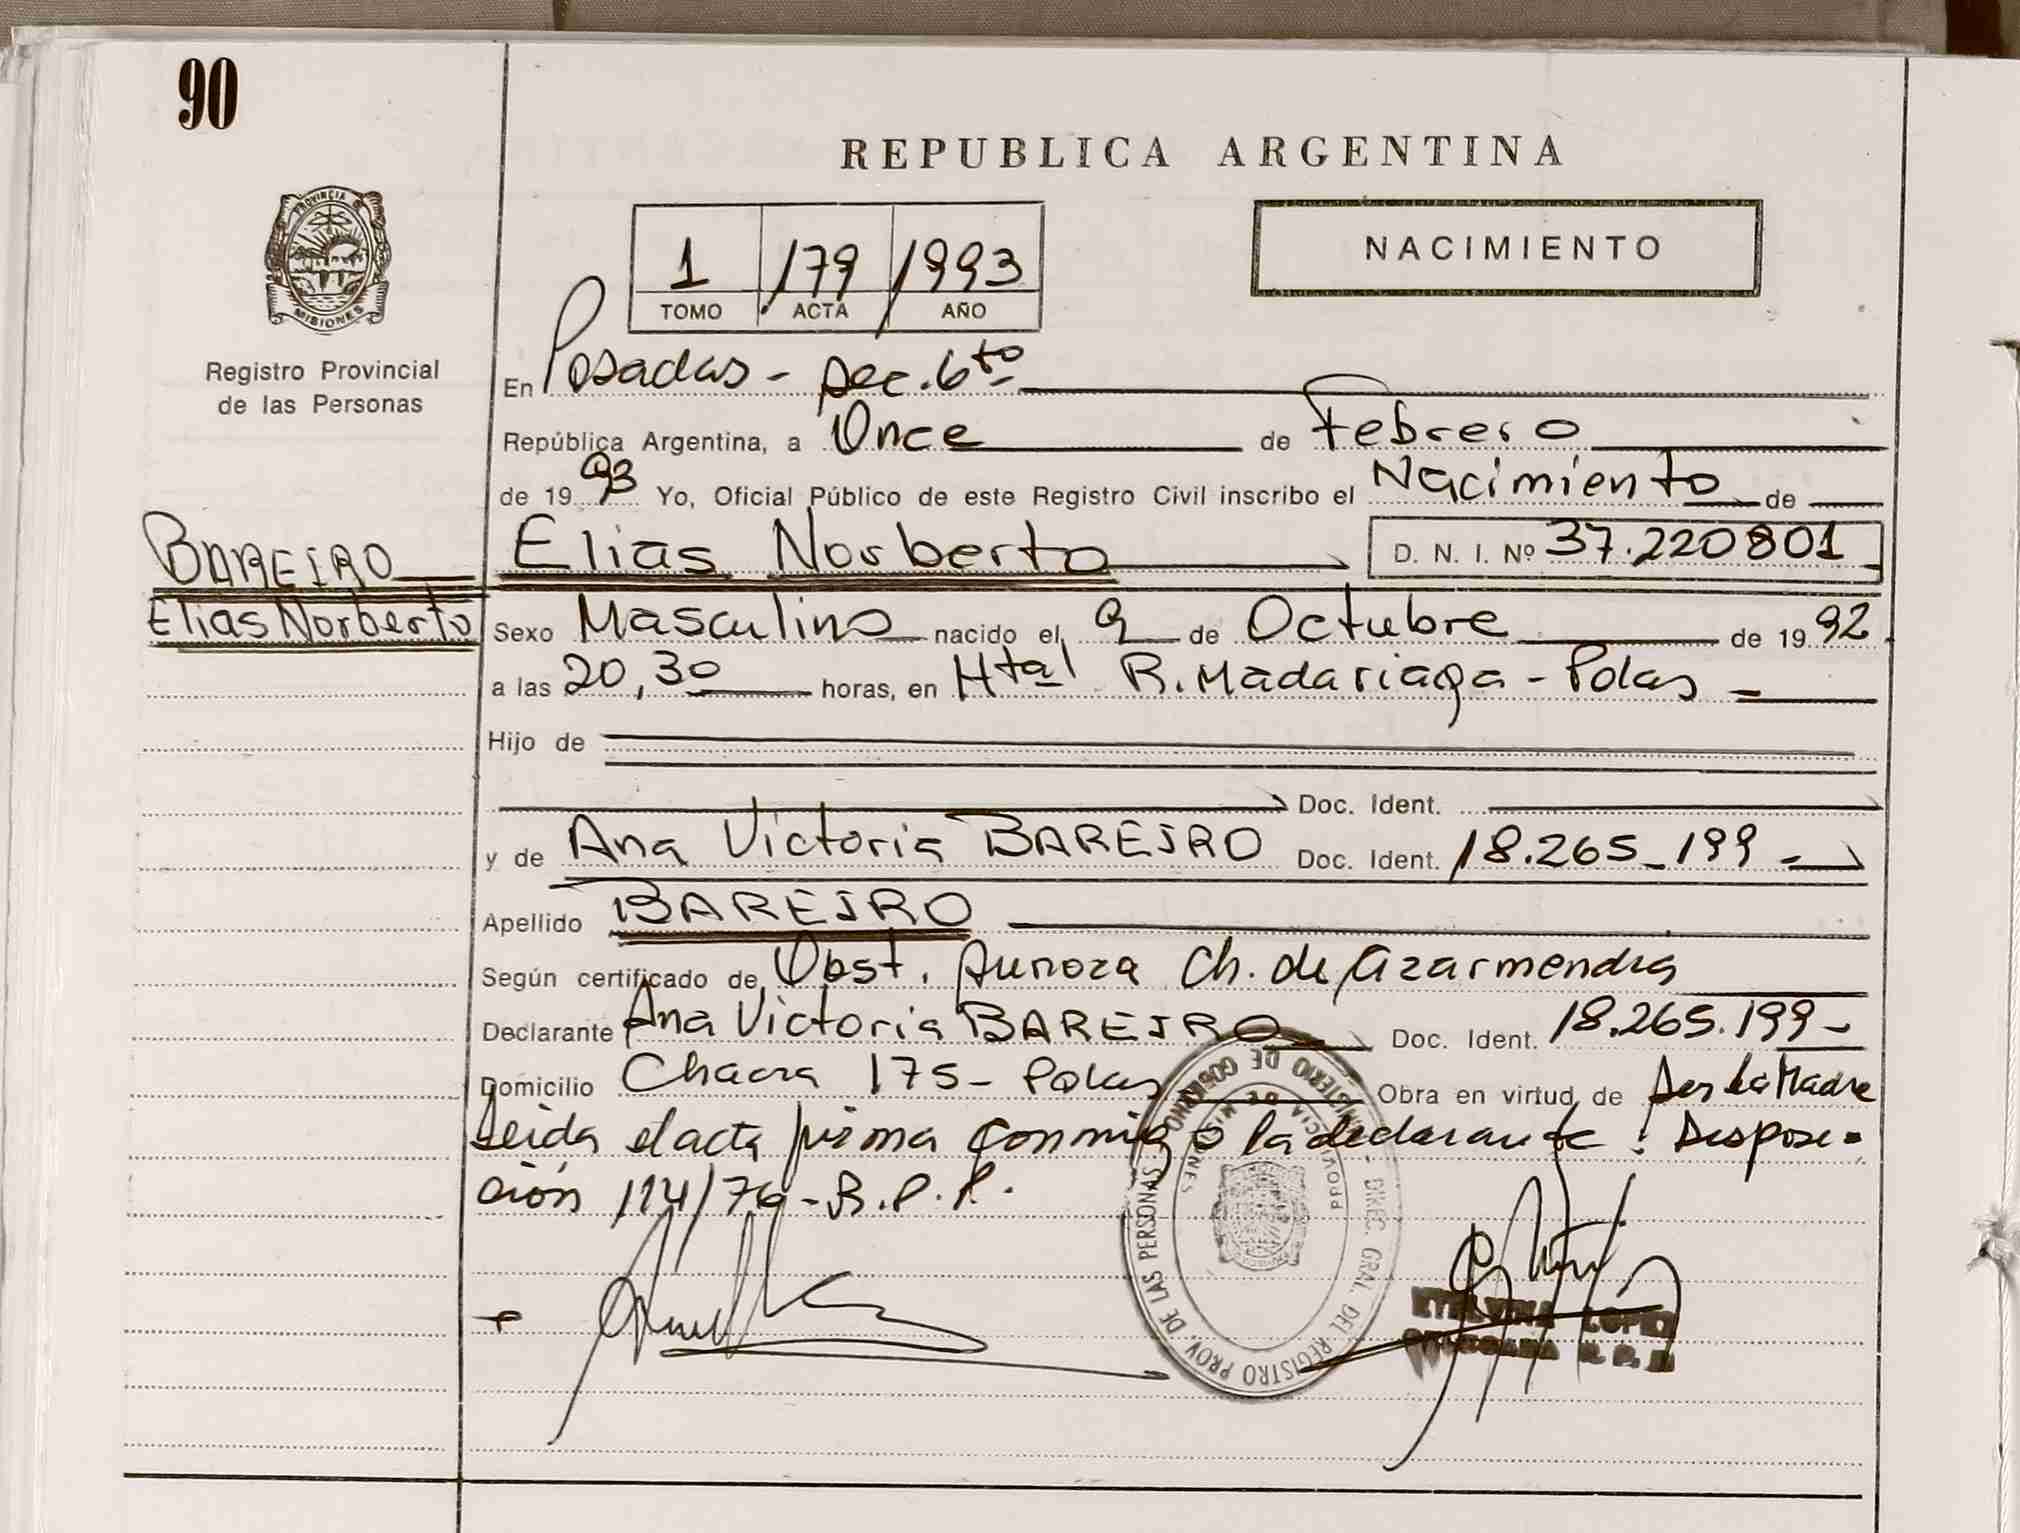 90
REPUBLICA ARGENTINA
PROVINCIA DE
MISIONES
1 179 1993
TOMO ACTA AÑO
NACIMIENTO
Registro Provincial
de las Personas
En Posadas - Sec. 6to
República Argentina, a Once de Febrero
de 19 93 Yo, Oficial Público de este Registro Civil inscribo el Nacimiento de
BAREIRO
Elias Norberto
Elias Norberto D. N. I. Nº 37.220801
Sexo Masculino nacido el 9 de Octubre de 19 92
a las 20,30 horas, en Htal R. Madariaga - Pdas
Hijo de
Doc. Ident.
y de Ana Victoria BAREIRO Doc. Ident. 18.265_199
Apellido BAREIRO
Según certificado de Obst. Aurora Ch. de Azarmendia
Declarante Ana Victoria BAREIRO Doc. Ident. 18.265.199
Domicilio Chacra 175 - Pdas Obra en virtud de Ser la Madre
Leida el acta firma conmigo la declarante: Disposi-
ción 114/76 - R.P.P.
MINISTERIO DE GOBIERNO - DIREC. GRAL. DEL REGISTRO PROV. DE LAS PERSONAS
PROVINCIA DE MISIONES
ETELVINA LOPEZ